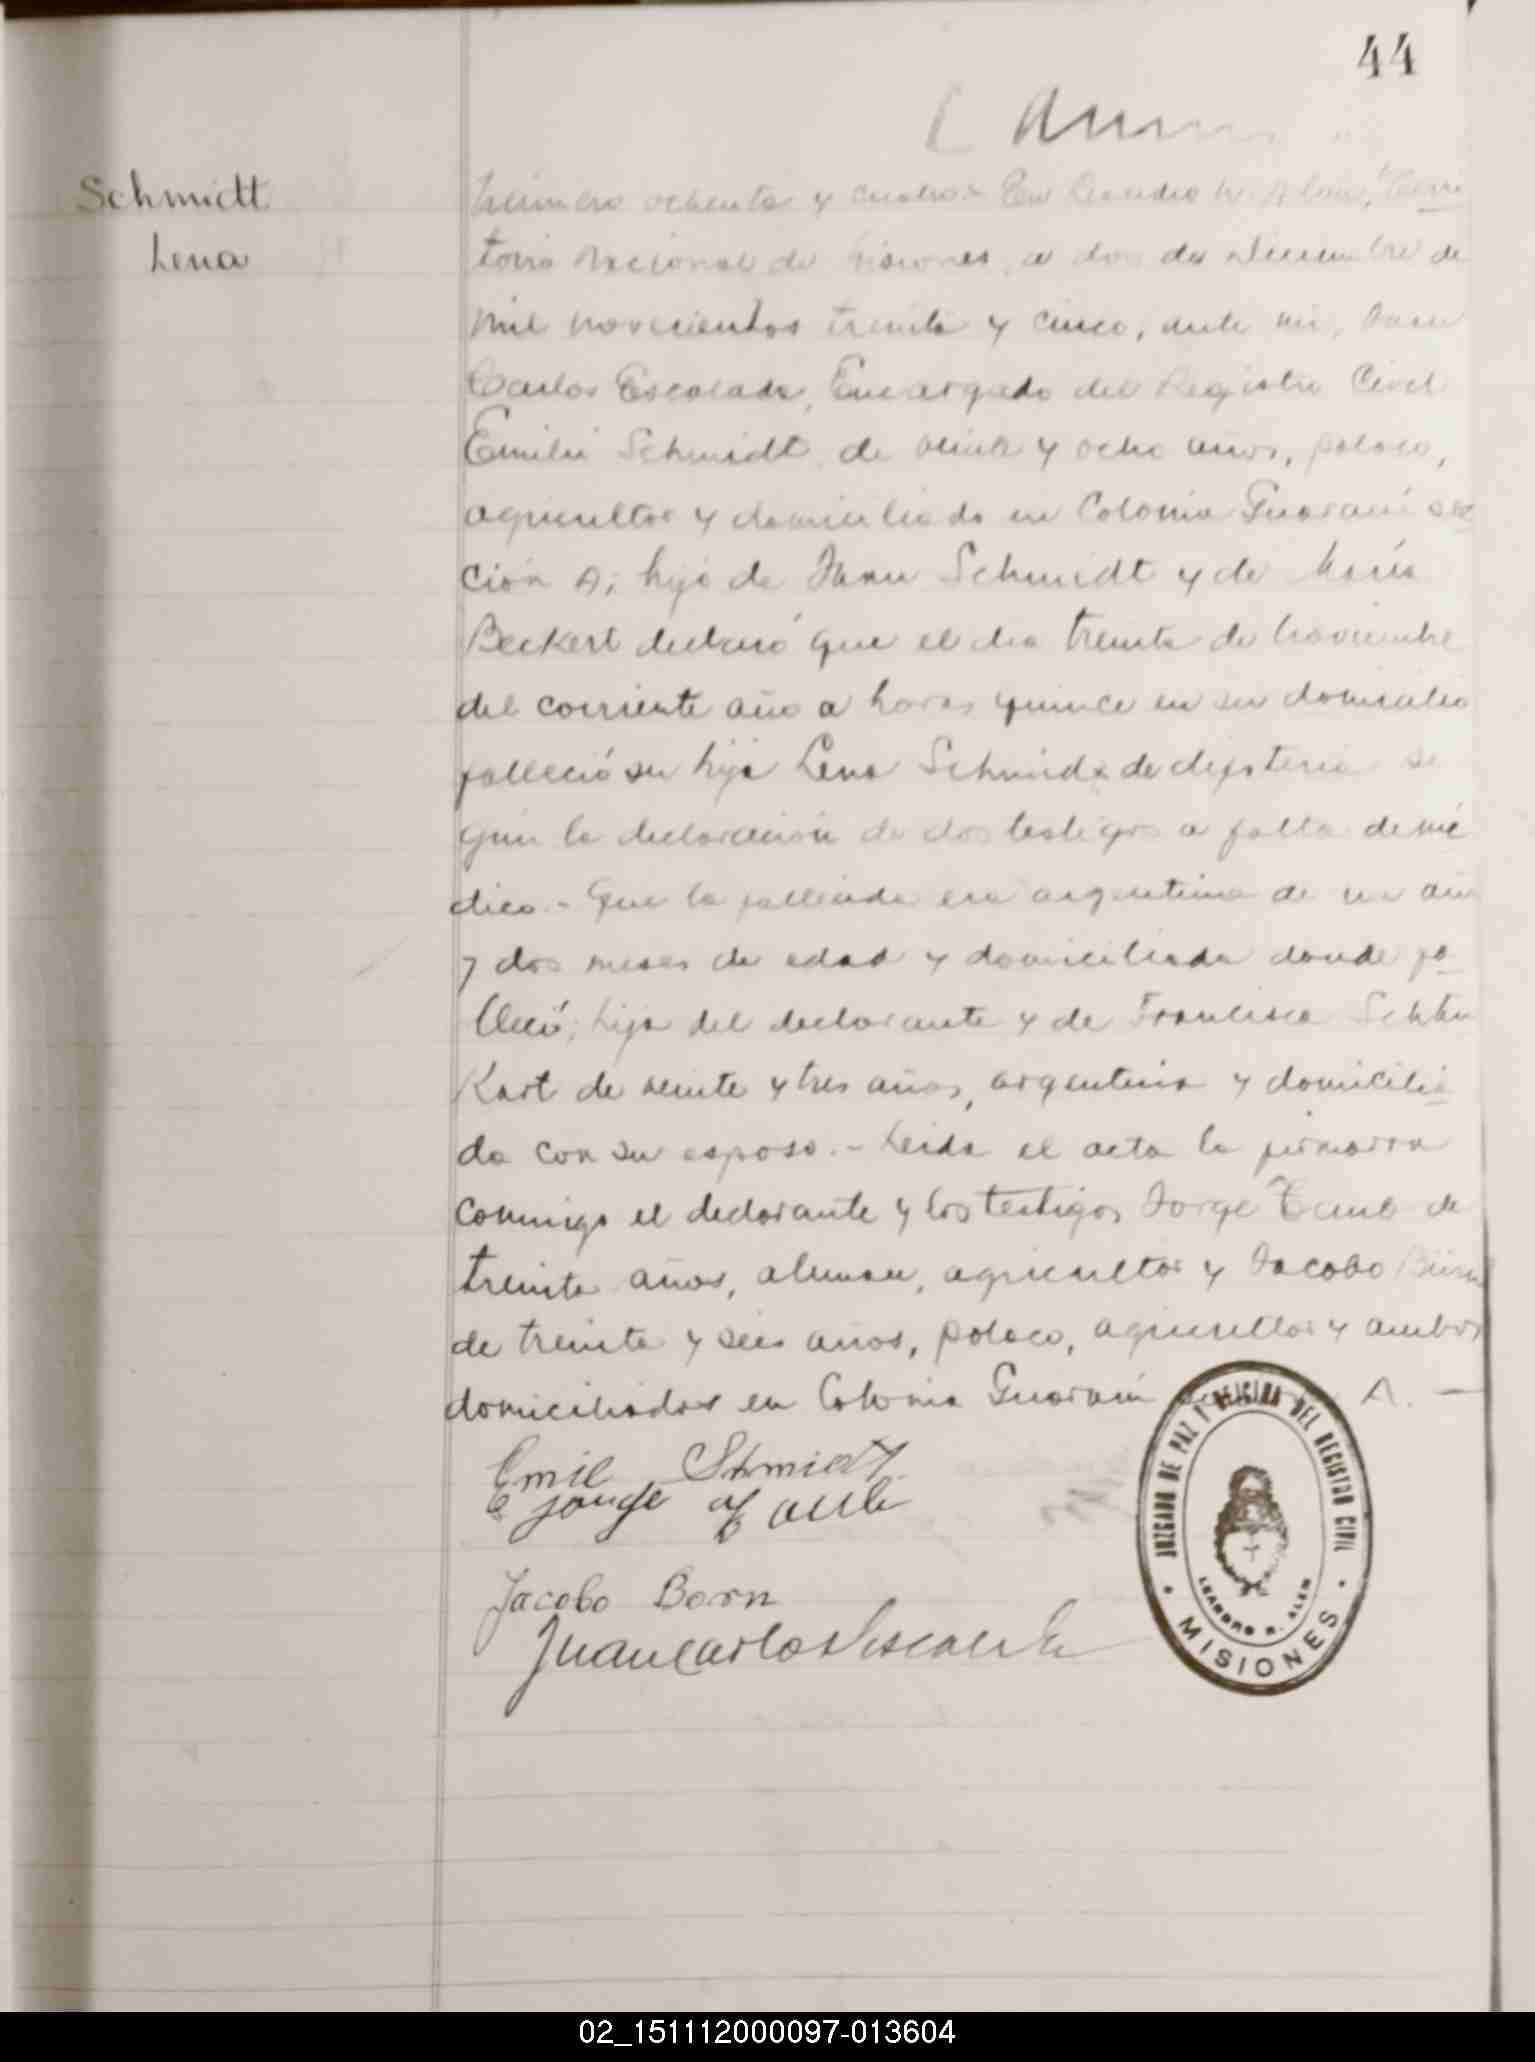 44
Schmidt
Lena
Número ochenta y cuatro. En Leandro N. Alem, Terri
torio Nacional de Misiones, a dos de Diciembre de
mil novecientos treinta y cinco, ante mi, Juan
Carlos Escalada, Encargado del Registro Civil
Emilio Schmidt, de veinte y ocho años, polaco,
agricultor y domiciliado en Colonia Guaraní sec
ción A; hijo de Juan Schmidt y de María
Beckert declaró que el dia treinta de Noviembre
del corriente año a horas quince en su domicilio
falleció su hija Lena Schmidt de difteria se
gún la declaración de dos testigos a falta de mé
dico.- Que la fallecida era argentina de un año
y dos meses de edad y domiciliada donde fa
lleció; hija del declarante y de Francisca
Kart de veinte y tres años, argentina y domicilia
da con su esposo.- Leida el acta la firmaron
conmigo el declarante y los testigos Jorge Taub de
treinta años, aleman, agricultor y Jacobo
de treinta y seis años, polaco, agricultor y ambos
domiciliados en Colonia Guaraní A. —
Emil Shmidt
Jacobo Born
Juan Carlos Escalada
JUZGADO DE PAZ Y OFICINA DEL REGISTRO CIVIL
LEANDRO N. ALEM
MISIONES
02_151112000097-013604